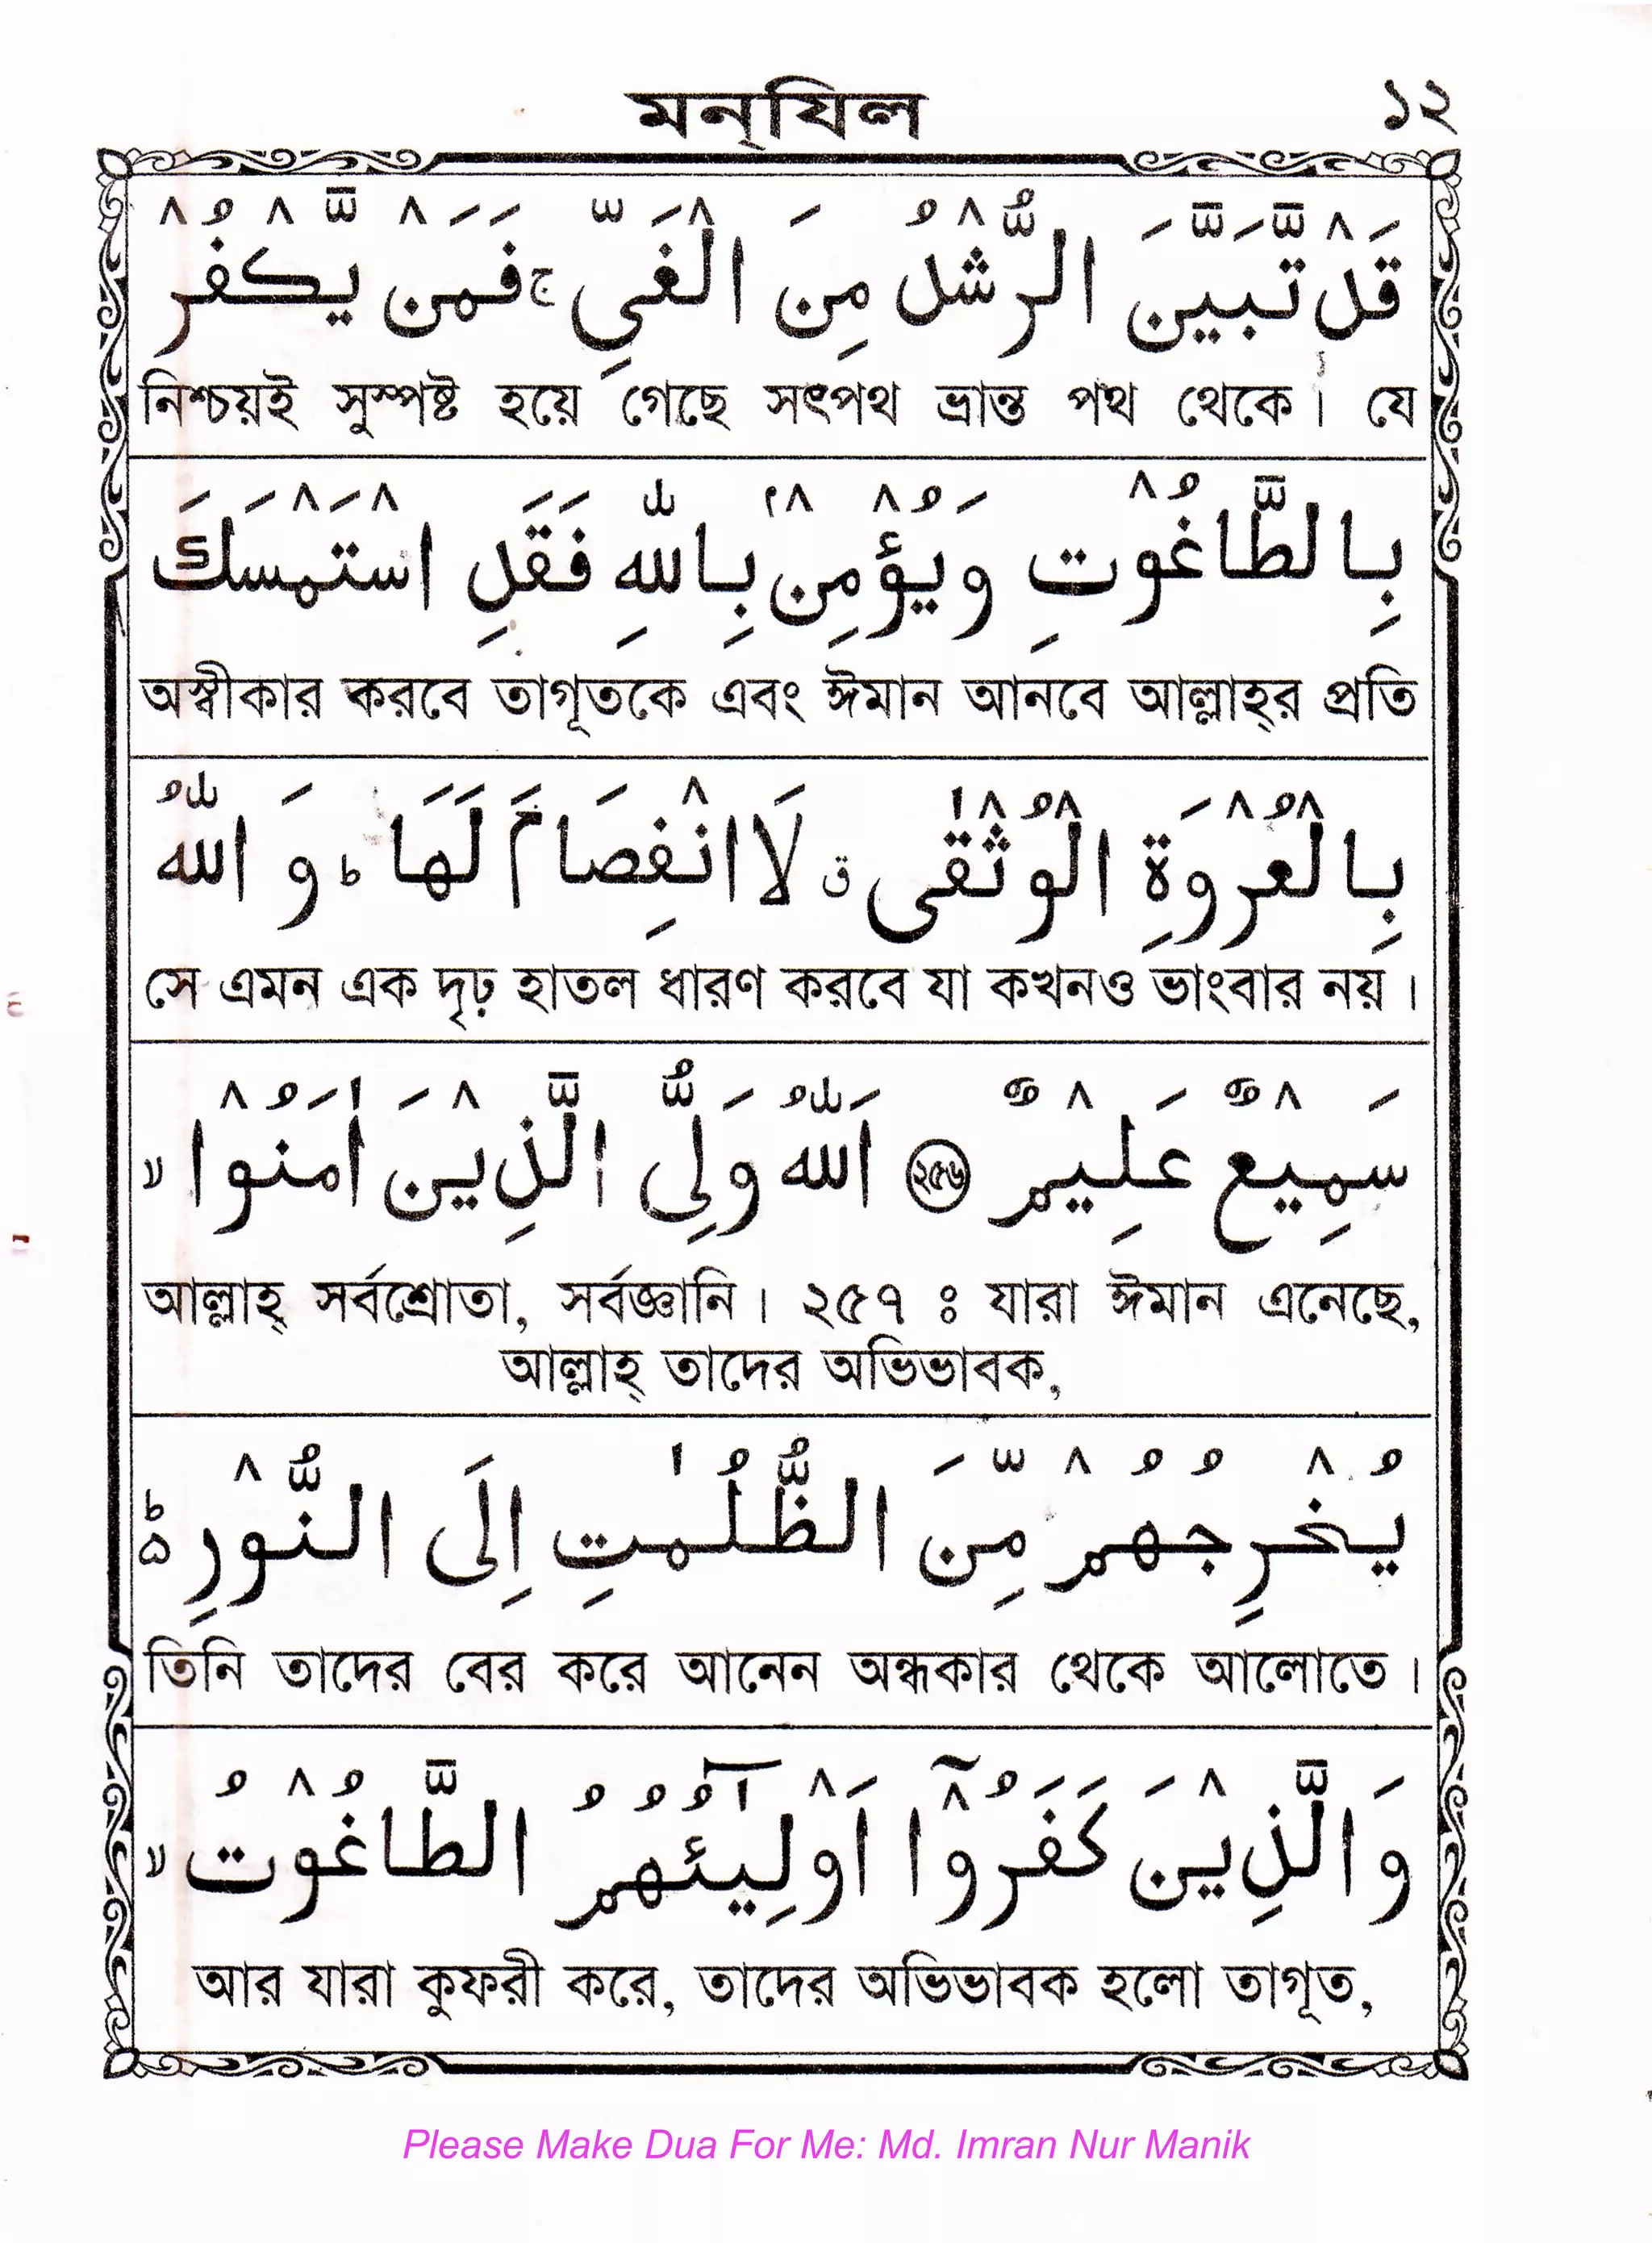 মন্‌যিল ১২
قَدْ تَّبَيَّنَ الرُّشْدُ مِنَ الْغَيِّ ج فَمَنْ يَّكْفُرْ
নিশ্চয়ই সুস্পষ্ট হয়ে গেছে সৎপথ ভ্রান্ত পথ থেকে। যে
بِالطَّاغُوْتِ وَيُؤْمِنْۢ بِاللّٰهِ فَقَدِ اسْتَمْسَكَ
অস্বীকার করবে তাগূতকে এবং ঈমান আনবে আল্লাহ্‌র প্রতি
بِالْعُرْوَةِ الْوُثْقٰى ق لَا انْفِصَامَ لَهَا ط وَ اللّٰهُ
সে এমন এক দৃঢ় হাতল ধারণ করবে যা কখনও ভাংবার নয়।
سَمِيْعٌ عَلِيْمٌ ২৫৬ اَللّٰهُ وَلِيُّ الَّذِيْنَ اٰمَنُوْا لا
আল্লাহ্ সর্বশ্রোতা, সর্বজ্ঞানি। ২৫৭ ঃ যারা ঈমান এনেছে,
আল্লাহ্ তাদের অভিভাবক,
يُخْرِجُهُمْ مِّنَ الظُّلُمٰتِ اِلَى النُّوْرِ ط ۵
তিনি তাদের বের করে আনেন অন্ধকার থেকে আলোতে।
وَالَّذِيْنَ كَفَرُوْۤا اَوْلِيٰٓئُهُمُ الطَّاغُوْتُ لا
আর যারা কুফরী করে, তাদের অভিভাবক হলো তাগূত,
Please Make Dua For Me: Md. Imran Nur Manik